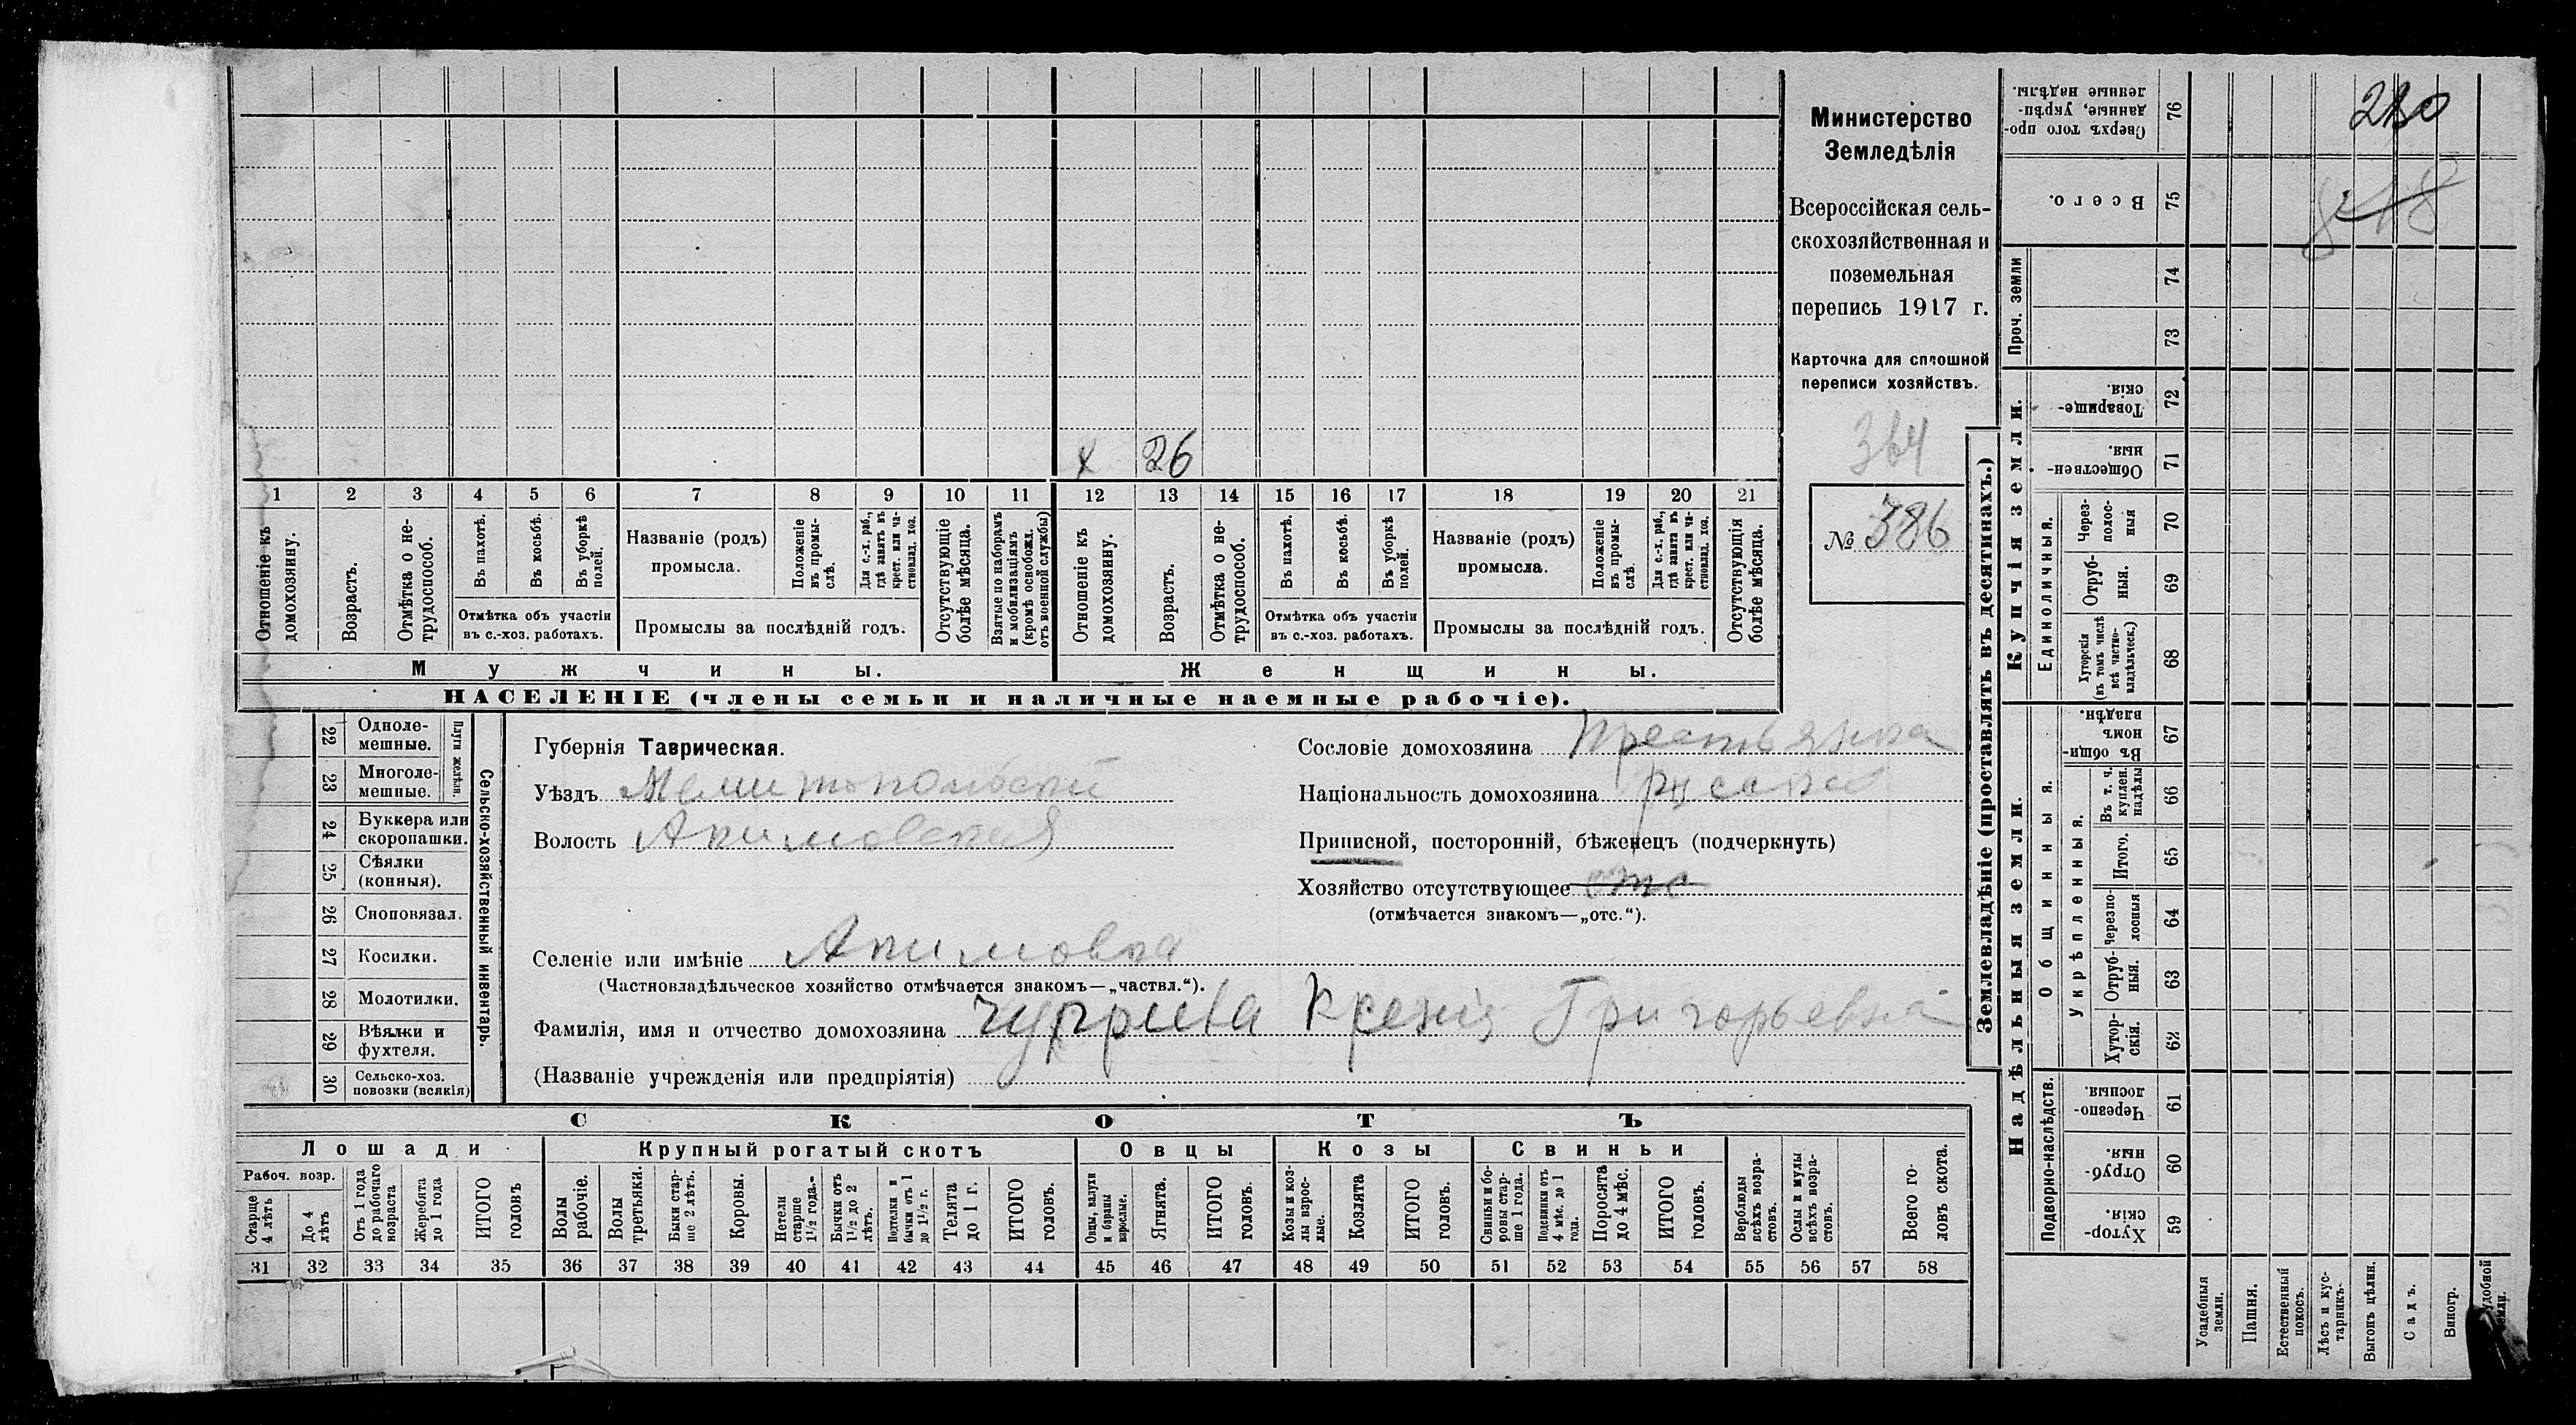 Министерство
Земледѣлія
Всероссійская сель-
скохозяйственная и
поземельная
перепись 1917 г.
Карточка для сплошной
переписи хозяйствъ.
364
№ 386
х 26
1 2 3 4 5 6 7 8 9 10 11 12 13 14 15 16 17 18 19 20 21
Отношеніе къ домохозяину.
Возрастъ.
Отмѣтка о не-трудоспособ.
Въ пахотѣ.
Въ косьбѣ.
Въ уборкѣ полей.
Отмѣтка объ участіи
въ с.-хоз. работахъ.
Названіе (родъ)
промысла.
Положеніе въ промы-слѣ.
Для с.-х. раб., гдѣ занятъ въ крест. или ча-стновлад. хоз.
Промыслы за послѣдній годъ.
Отсутствующіе болѣе мѣсяца.
Взятые по наборамъ и мобилизаціямъ (кромѣ освобожд. отъ военной службы)
Отношеніе къ домохозяину.
Возрастъ.
Отмѣтка о не-трудоспособ.
Въ пахотѣ.
Въ косьбѣ.
Въ уборкѣ полей.
Отмѣтка объ участіи
въ с.-хоз. работахъ.
Названіе (родъ)
промысла.
Положеніе въ промы-слѣ.
Для с.-х. раб., гдѣ занята въ крест. или ча-стновлад. хоз.
Промыслы за послѣдній годъ.
Отсутствующія болѣе мѣсяца.
Мужчины.
Женщины.
НАСЕЛЕНІЕ (члены семьи и наличные наемные рабочіе).
22 Одноле-мешные.
23 Многоле-мешные.
Плуги желѣзн.
24 Буккера или скоропашки.
25 Сѣялки (конныя).
26 Сноповязал.
27 Косилки.
28 Молотилки.
29 Вѣялки и фухтеля.
30 Сельско-хоз. повозки (всякія)
Сельско-хозяйственный инвентарь.
Губернія Таврическая.
Уѣздъ Мелитопольский
Волость Акимовская
Сословіе домохозяина Крестьянка
Національность домохозяина русская
Приписной, посторонній, бѣженецъ (подчеркнуть)
Хозяйство отсутствующее отс
(отмѣчается знакомъ—„отс.“).
Селеніе или имѣніе Акимовка
(Частновладѣльческое хозяйство отмѣчается знакомъ—„частвл.“).
Фамилія, имя и отчество домохозяина Ксенія Григорьевна
(Названіе учрежденія или предпріятія)
СКОТЪ
Лошади
Крупный рогатый скотъ
Овцы
Козы
Свиньи
Рабоч. возр.
Старще 4 лѣтъ
До 4 лѣтъ
Отъ 1 года до рабочаго возраста
Жеребята до 1 года
ИТОГО головъ
Волы рабочіе.
Волы третьяки.
Быки стар-ше 2 лѣтъ.
Коровы.
Нетели старше 1½ года.
Бычки отъ 1½ до 2 лѣтъ.
Нотелки и бычки отъ 1 до 1½ г.
Телята до 1 г.
ИТОГО головъ.
Овцы, валухи и бараны взрослые.
Ягнята.
ИТОГО головъ.
Козы и коз-лы взрос-лые.
Козлята
ИТОГО головъ.
Свиньи и бо-ровы стар-ше 1 года.
Подсвинки отъ 4 мѣс. до 1 года.
Поросята до 4 мѣс.
ИТОГО головъ.
Верблюды всѣхъ возра-стовъ.
Ослы и мулы всѣхъ возра-стовъ.
Всего го-ловъ скота.
31 32 33 34 35 36 37 38 39 40 41 42 43 44 45 46 47 48 49 50 51 52 53 54 55 56 57 58
Землевладѣніе (проставлять въ десятинахъ.)
Купчія земли.
Надѣльныя земли.
76 Сверхъ того про-данные, укрѣп-ленные надѣлы.
75 Всего.
Проч. земли
74
73
72 Товарище-скія.
71 Обществен-ныя.
Единоличныя.
70 Через-полос-ныя
69 Отруб-ныя.
68 Хуторскія (въ томъ числѣ всѣ частно-владѣльческ.)
Общинныя.
67 Въ общин-номъ владѣн.
Укрѣпленныя.
66 Въ т. ч. куплен. надѣлы
65 Итого.
64 Черезпо-лосныя
63 Отруб-ныя.
62 Хутор-скія.
Подворно-наслѣдств.
61 Черезпо-лосныя.
60 Отруб-ныя.
59 Хутор-скія.
Усадебныя земли.
Пашня.
Естественный покосъ.
Лѣсъ и кус-тарникъ.
Выгонъ цѣлин.
Садъ.
Виногр.
удобной земли.